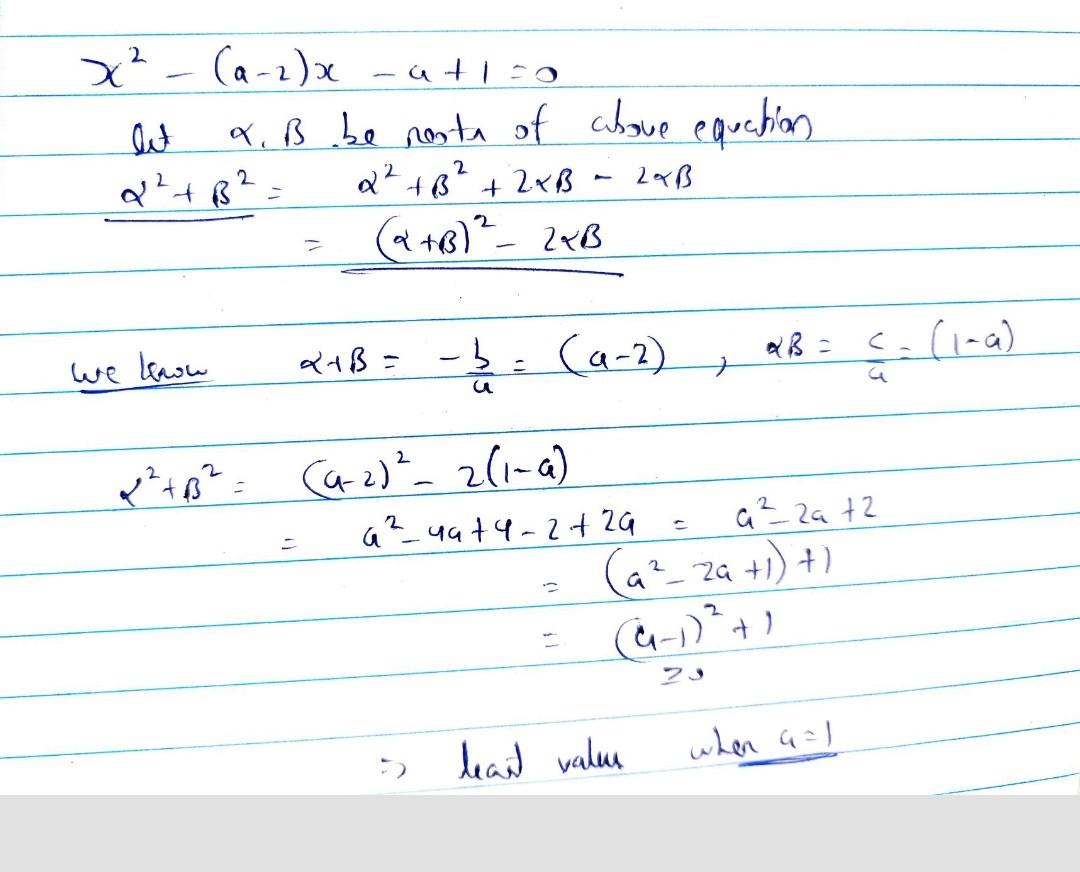 x² - (a-2)x - a + 1 = 0
let α, β be roots of above equation
α² + β² = α² + β² + 2αβ - 2αβ
= (α+β)² - 2αβ
we know α+β = -b/a = (a-2) , αβ = c/a = (1-a)
α² + β² = (a-2)² - 2(1-a)
= a² - 4a + 4 - 2 + 2a = a² - 2a + 2
= (a² - 2a + 1) + 1
= (a-1)² + 1
≥0
⇒ least value when a=1